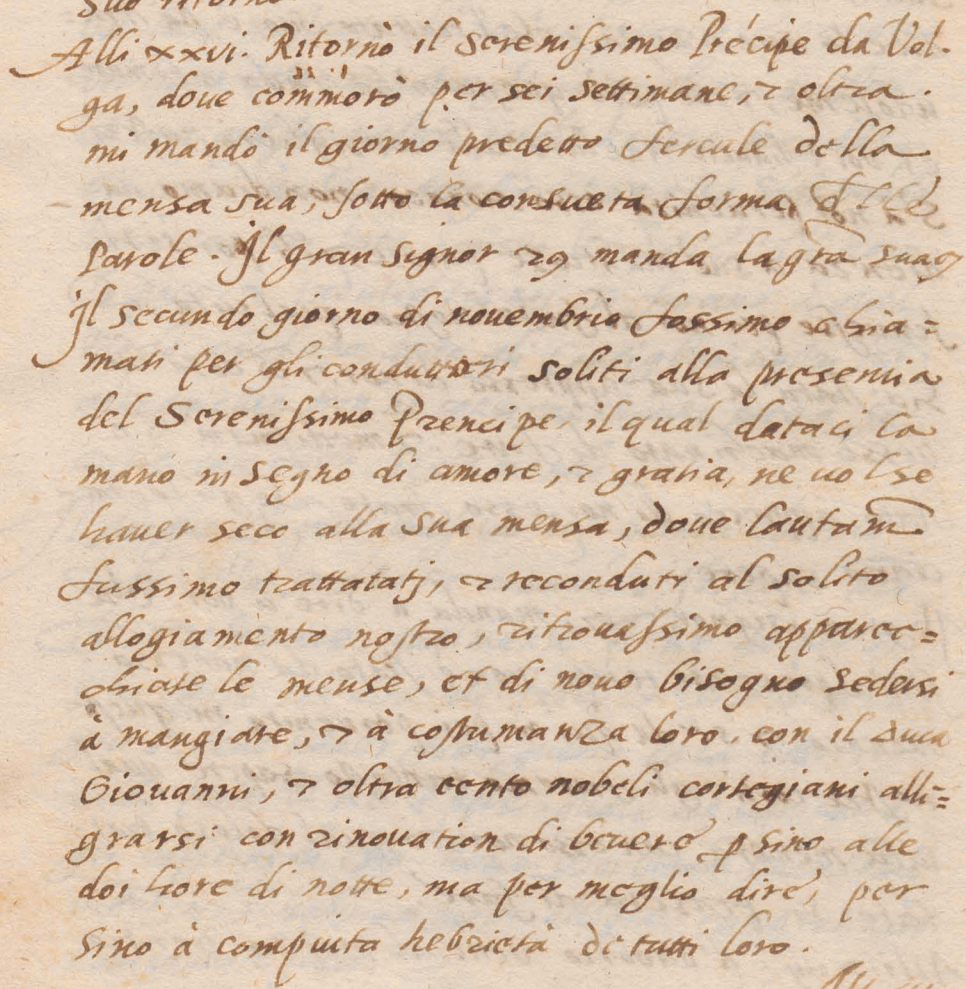 suo ritorno
Alli xxvi. Ritornò il Sereniſsimo Précipe da Vol-
ga, doue commorò per sei settimane, & oltra.
mi mandò il giorno predetto fercule della
mensa sua, sotto la consueta forma
parole. Il gran Signor manda la gra sua
Il secundo giorno di nouembrio fossimo chia=
mati per gli conduttori soliti alla presentia
del Sereniſsimo Prencipe, il qual dataci la
mano in segno di amore, & gratia, ne uolse
hauer seco alla sua mensa, doue lautam
fussimo trattatatj, & reconduti al solito
allogiamento nostro, ritrouaſsimo apparec=
chiate le mense, et di nouo bisogno sedersi
à mangiare, & à costumanza loro, con il Duca
Giouanni, & oltra cento nobeli cortegiani alle=
grarsi con rinouation di beuere p sino alle
doi hore di notte, ma per meglio dire, per
sino à compiuta hebrietà de tutti loro.